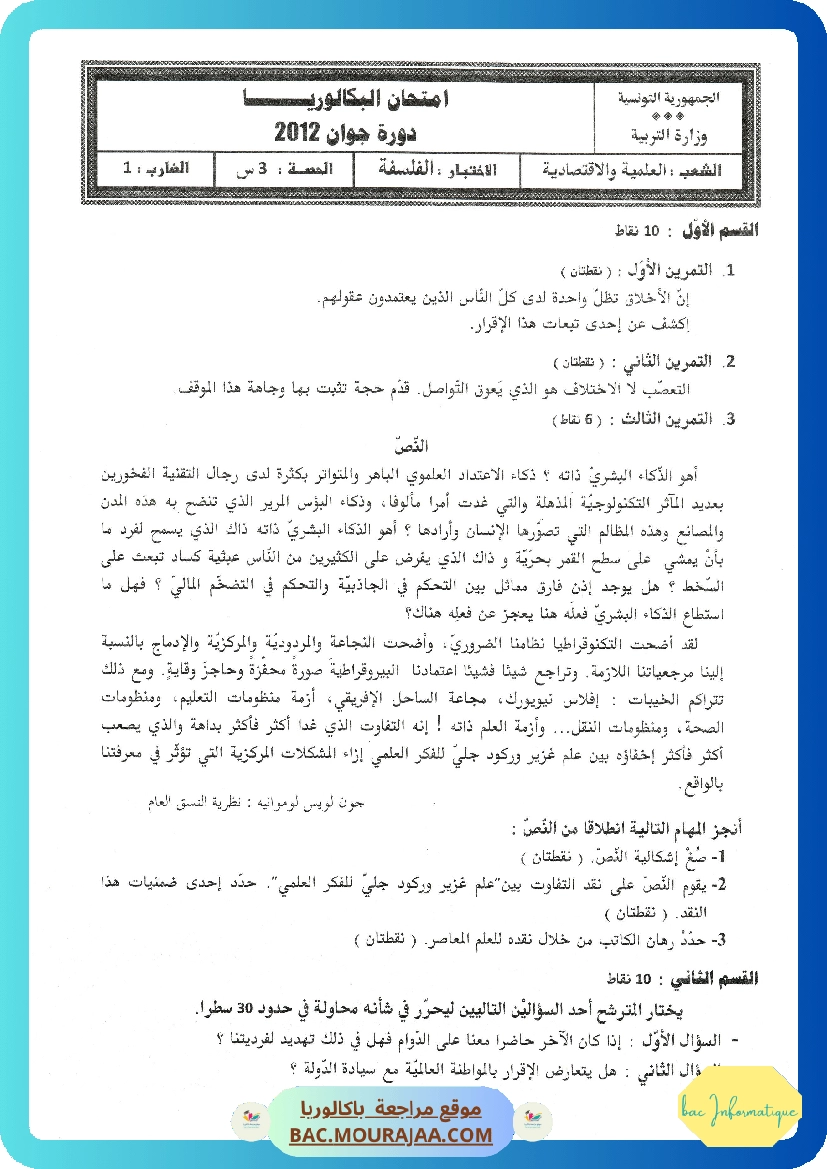 الجمهورية التونسية
وزارة التربية
امتحان البكالوريـــا
دورة جوان 2012
الشعب : العلمية والاقتصادية
الاختبار : الفلسفة
الحصة : 3 س
الضارب : 1
القسم الأوّل : 10 نقاط
1. التمرين الأوّل : ( نقطتان )
إنّ الأخلاق تظلّ واحدة لدى كلّ النّاس الذين يعتمدون عقولهم.
إكشف عن إحدى تبعات هذا الإقرار.
2. التمرين الثاني : ( نقطتان )
التعصّب لا الاختلاف هو الذي يَعوق التّواصل. قدّم حجة تثبت بها وجاهة هذا الموقف
3. التمرين الثالث : ( 6 نقاط )
النّصّ
أهو الذّكاء البشريّ ذاته ؟ ذكاء الاعتداد العلموي الباهر والمتواتر بكثرة لدى رجال التقنية الفخورين
بعديد المآثر التكنولوجيّة المذهلة والتي غدت أمرا مألوفا، وذكاء البؤس المرير الذي تنضح به هذه المدن
والمصانع وهذه المظالم التي تصوّرها الإنسان وأرادها ؟ أهو الذكاء البشريّ ذاته ذاك الذي يسمح لفرد ما
بأنْ يمشي على سطح القمر بحرّيّة و ذاك الذي يفرض على الكثيرين من النّاس عبثية كساد تبعث على
السّخط ؟ هل يوجد إذن فارق مماثل بين التحكم في الجاذبيّة والتحكم في التضخّم الماليّ ؟ فهل ما
استطاع الذكاء البشريّ فعلَه هنا يعجز عن فعلِه هناك؟
لقد أضحت التكنوقراطيا نظامنا الضروريّ، وأضحت النجاعة والمردوديّة والمركزيّة والإدماج بالنسبة
إلينا مرجعياتنا اللازمة. وتراجع شيئا فشيئا اعتمادنا البيروقراطيةَ صورةً محفّزةً وحاجزَ وقايةٍ. ومع ذلك
تتراكم الخيبات : إفلاس نيويورك، مجاعة الساحل الإفريقي، أزمة منظومات التعليم، ومنظومات
الصحة، ومنظومات النقل... وأزمة العلم ذاته ! إنه التفاوت الذي غدا أكثر فأكثر بداهة والذي يصعب
أكثر فأكثر إخفاؤه بين علم غزير وركود جليّ للفكر العلمي إزاء المشكلات المركزية التي تؤثّر في معرفتنا
بالواقع.
جون لويس لوموانيه : نظرية النسق العام
أنجز المهام التالية انطلاقا من النّصّ :
1- صُغْ إشكالية النّصّ. ( نقطتان )
2- يقوم النّصّ على نقد التفاوت بين"علم غزير وركود جليّ للفكر العلمي". حدّد إحدى ضمنيات هذا
النقد. ( نقطتان )
3- حدّدْ رهان الكاتب من خلال نقده للعلم المعاصر. ( نقطتان )
القسم الثاني : 10 نقاط
يختار المترشح أحد السؤاليْن التاليين ليحرّر في شأنه محاولة في حدود 30 سطرا.
- السؤال الأوّل : إذا كان الآخر حاضرا معنا على الدّوام فهل في ذلك تهديد لفرديتنا ؟
السؤال الثاني : هل يتعارض الإقرار بالمواطنة العالميّة مع سيادة الدّولة ؟
موقع مراجعة باكالوريا
BAC.MOURAJAA.COM
bac Informatique